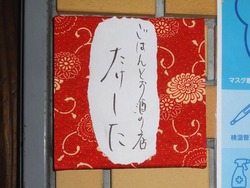 ごはんとお酒の店
たけした
マスク
検温